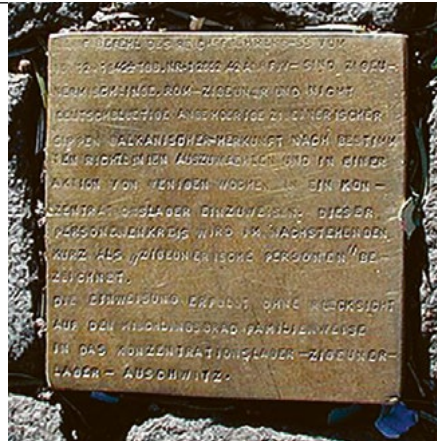 BEFEHL DES REICHSFÜHRERS-SS VOM
16.12.1942 - SIND ZIGEU-
NERMISCHLINGE, ROM-ZIGEUNER UND NICHT
DEUTSCHBLÜTIGE ANGEHÖRIGE ZIGEUNERISCHER
SIPPEN BALKANISCHER-HERKUNFT NACH BESTIMM
TEN RICHTLINIEN AUSZUWÄHLEN UND IN EINER
AKTION VON WENIGEN WOCHEN IN EIN KON-
ZENTRATIONSLAGER EINZUWEISEN. DIESER
PERSONENKREIS WIRD IM NACHSTEHENDEN
KURZ ALS „ZIGEUNERISCHE PERSONEN" BE-
ZEICHNET.
DIE EINWEISUNG ERFOLGT OHNE RÜCKSICHT
AUF DEN MISCHLINGSGRAD FAMILIENWEISE
IN DAS KONZENTRATIONSLAGER-ZIGEUNER-
LAGER-AUSCHWITZ.